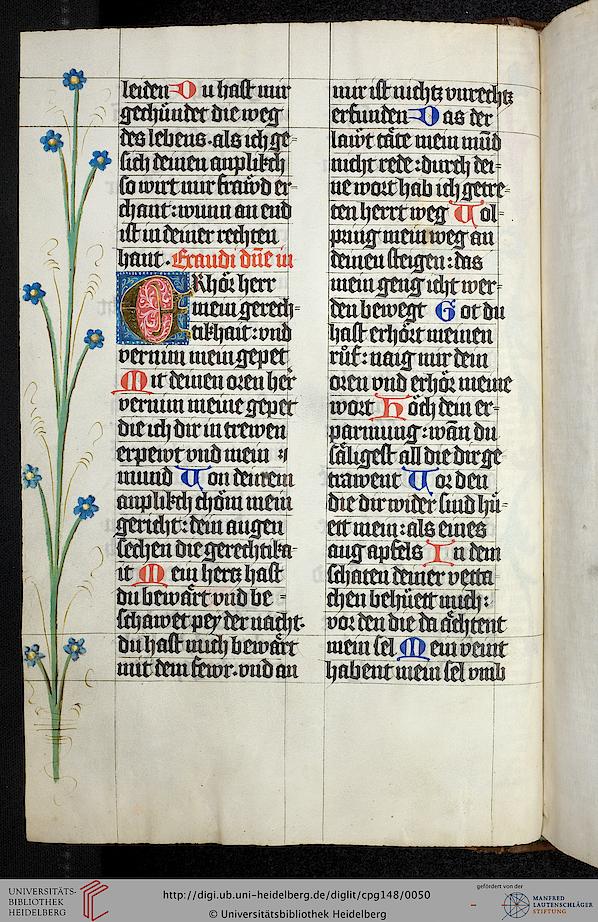 leiden D u hast mir
gechundet die weg
des lebens. als ich ge-
sich deinen anplikch
so wirt mir frawd er-
chant: wunn an end
ist in deiner rechten
hant. Exaudi dn̄e iu
ERhör herr
mein gerech-
tikhait: vnd
vernim mein gepet
Mit deinen oren her
vernim meine gepet
die ich dir in trewen
erpewt vnd mein
mund Von deinem
anplikch chom mein
gericht: dein augen
sechen die gerechtika-
it Mein hertz hast
du bewärt vnd be-
schawet pey der nacht.
du hast mich bewärt
mit dem fewr. vnd an
mir ist nichtz vnrechtz
erfunden D as der
lawt täte mein mūd
nicht rede: durch dei-
ne wort hab ich getre-
ten herrt weg Vol-
pring mein weg an
deinen steigen: das
mein geng icht wer-
den bewegt Got du
hast erhört meinen
rüf: naig mir dein
oren vnd erhör meine
wort Höch dein er-
parmung: wān du
säligest all die dir ge-
trawent Vor den
die dir wider sind hü-
ett mein: als eines
aug apfels In dem
schaten deiner vetta
chen behüett mich:
vor den die da ächtent
mein sel Mein veint
habent mein sel vmb
UNIVERSITÄTS-
BIBLIOTHEK
HEIDELBERG
http://digi.ub.uni-heidelberg.de/diglit/cpg148/0050
© Universitätsbibliothek Heidelberg
gefördert von der
MANFRED
LAUTENSCHLÄGER
STIFTUNG